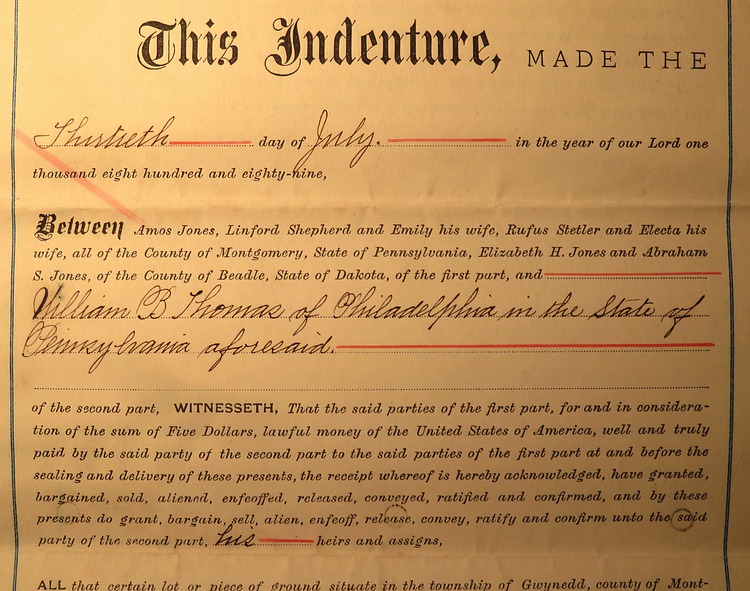 This Indenture, MADE THE
Thirtieth day of July. in the year of our Lord one
thousand eight hundred and eighty-nine,
Between Amos Jones, Linford Shepherd and Emily his wife, Rufus Stetler and Electa his
wife, all of the County of Montgomery, State of Pennsylvania, Elizabeth H. Jones and Abraham
S. Jones, of the County of Beadle, State of Dakota, of the first part, and
William B Thomas of Philadelphia in the State of
Pennsylvania aforesaid.
of the second part, WITNESSETH, That the said parties of the first part, for and in considera-
tion of the sum of Five Dollars, lawful money of the United States of America, well and truly
paid by the said party of the second part to the said parties of the first part at and before the
sealing and delivery of these presents, the receipt whereof is hereby acknowledged, have granted,
bargained, sold, aliened, enfeoffed, released, conveyed, ratified and confirmed, and by these
presents do grant, bargain, sell, alien, enfeoff, release, convey, ratify and confirm unto the said
party of the second part, his heirs and assigns,
ALL that certain lot or piece of ground situate in the township of Gwynedd, county of Mont-